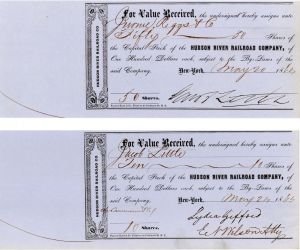 For Value Received, the undersigned hereby assigns unto
Fifty 50 Shares of
the Capital Stock of the HUDSON RIVER RAILROAD COMPANY, of
One Hundred Dollars each, subject to the By-Laws of the
said Company. New-York, May 20
50 Shares.
HUDSON RIVER RAILROAD CO.
For Value Received, the undersigned hereby assigns unto
Jacob Little
Ten 10 Shares of
the Capital Stock of the HUDSON RIVER RAILROAD COMPANY, of
One Hundred Dollars each, subject to the By-Laws of the
said Company. New-York, May 24
10 Shares.
Lydia Gifford
HUDSON RIVER RAILROAD CO.